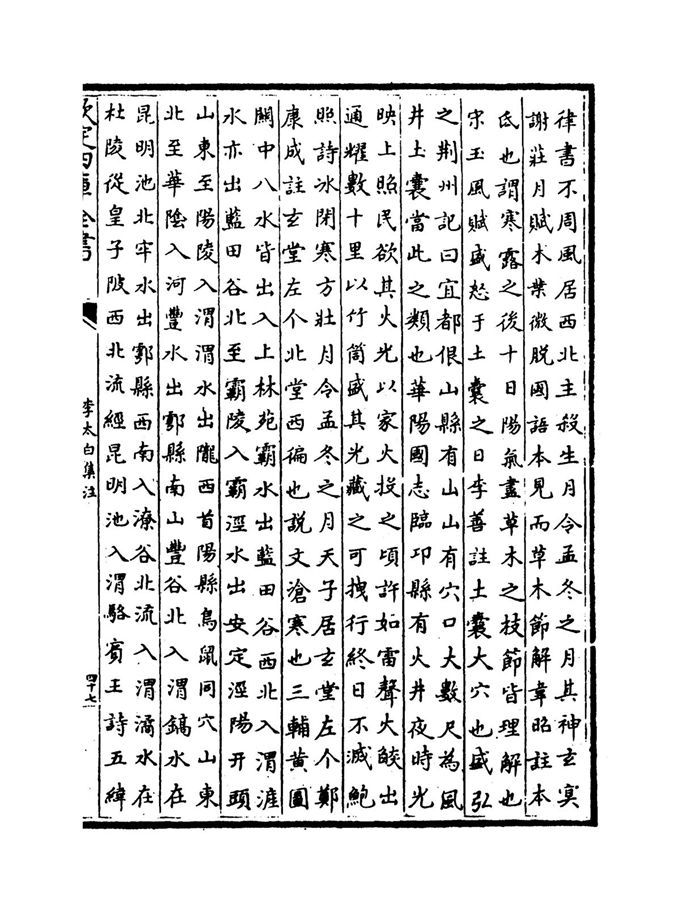 律書不周風居西北主殺生月令孟冬之月其神玄冥
謝莊月賦木葉微脱國語本見而草木節解韋昭註本
氐也謂寒露之後十日陽氣盡草木之枝節皆理解也
宋玉風賦盛怒于土囊之日李善註土囊大穴也盛弘
之荆州記曰宜都佷山縣有山山有穴口大數尺為風
井土囊當此之類也華陽國志臨邛縣有火井夜時光
映上昭民欲其火光以家火投之頃許如雷聲火燄出
通耀數十里以竹筒盛其光藏之可拽行終日不滅鮑
照詩冰閉寒方壯月令孟冬之月天子居玄堂左个鄭
康成註玄堂左个北堂西偏也説文滄寒也三輔黄圖
關中八水皆出入上林苑霸水出藍田谷西北入渭滻
水亦出藍田谷北至霸陵入霸涇水出安定涇陽开頭
山東至陽陵入渭渭水出隴西首陽縣鳥鼠同穴山東
北至華陰入河豐水出鄠縣南山豐谷北入渭鎬水在
昆明池北牢水出鄠縣西南入潦谷北流入渭潏水在
杜陵從皇子陂西北流經昆明池入渭駱賓王詩五緯
欽定四庫全書
李太白集注
四十七